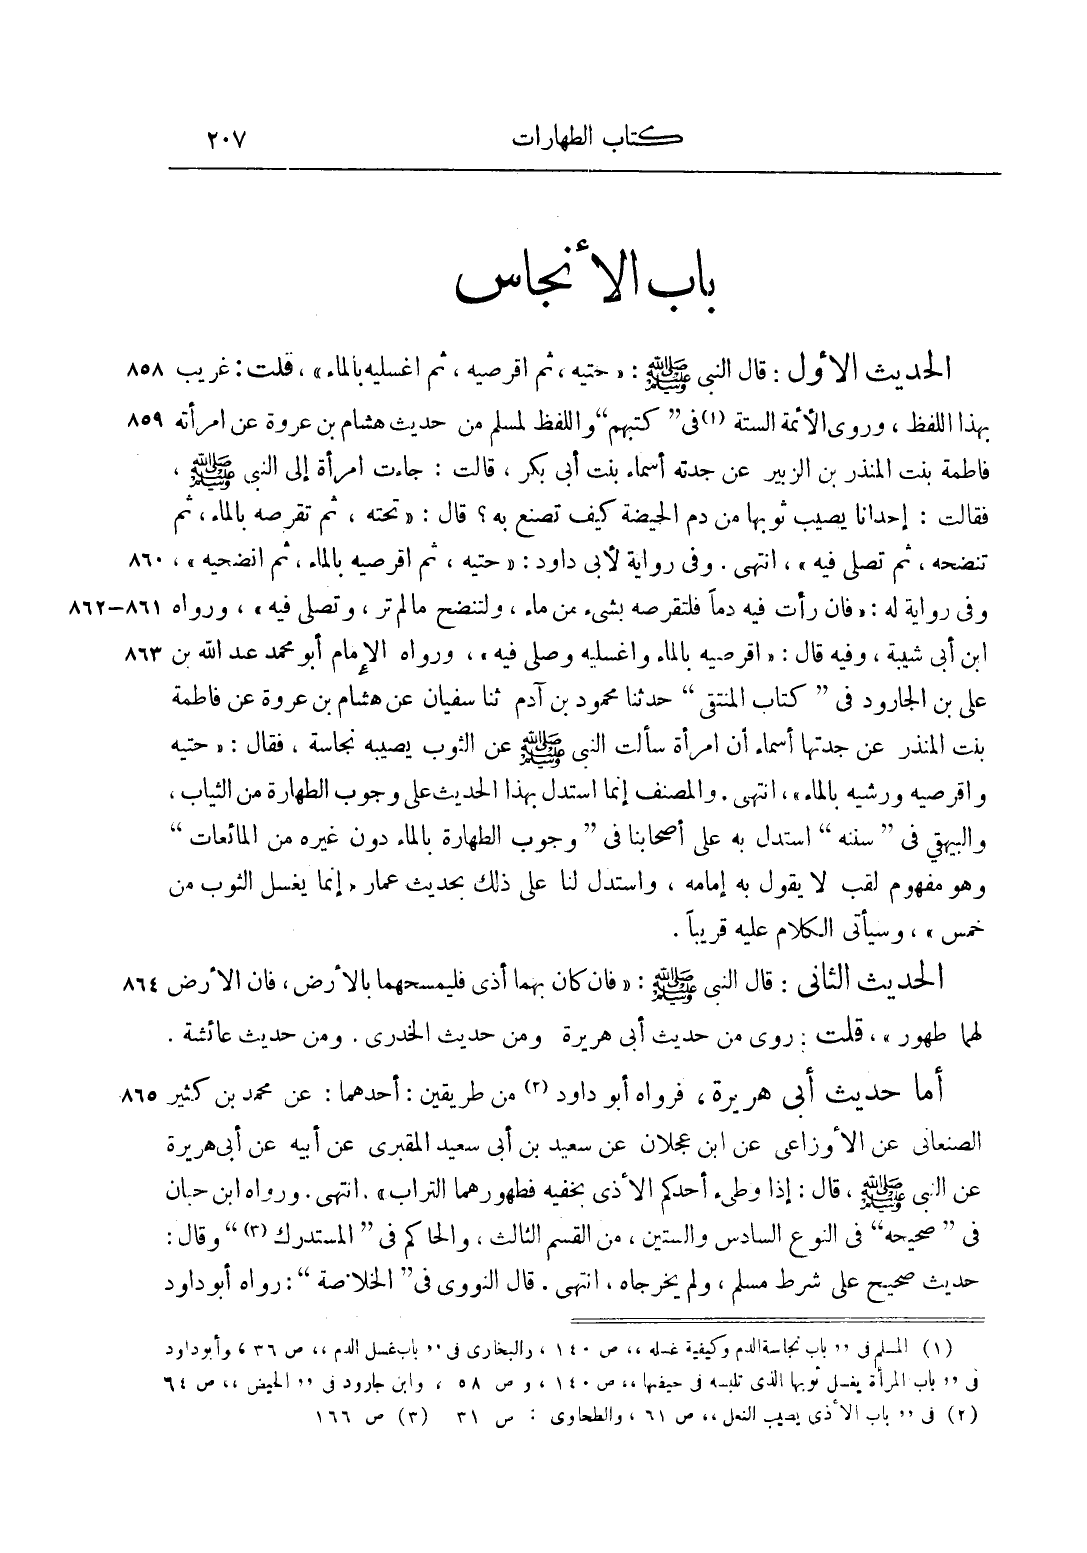 كتاب الطهارات ٢٠٧
باب الأنجاس
الحديث الأول : قال النبي ﷺ : « حتيه ، ثم اقرصيه ، ثم اغسليه بالماء » ، قلت : غريب ٨٥٨
بهذا اللفظ ، وروى الأئمة الستة (١) فى " كتبهم " واللفظ لمسلم من حديث هشام بن عروة عن امرأته ٨٥٩
فاطمة بنت المنذر بن الزبير عن جدته أسماء بنت أبى بكر ، قالت : جاءت امرأة إلى النبي ﷺ ،
فقالت : إحدانا يصيب ثوبها من دم الحيضة كيف تصنع به ؟ قال : « تحته ، ثم تقرصه بالماء ، ثم
تنضحه ، ثم تصلى فيه » ، انتهى . وفى رواية لأبى داود : « حتيه ، ثم اقرصيه بالماء ، ثم انضحيه » ، ٨٦٠
وفى رواية له : « فان رأت فيه دماً فلتقرصه بشىء من ماء ، ولتنضح مالم تر ، وتصلى فيه » ، ورواه ٨٦١-٨٦٢
ابن أبى شيبة ، وفيه قال : « اقرصيه بالماء واغسليه وصلى فيه » ، ورواه الإمام أبو محمد عبد الله بن ٨٦٣
على بن الجارود فى " كتاب المنتقى " حدثنا محمود بن آدم ثنا سفيان عن هشام بن عروة عن فاطمة
بنت المنذر عن جدتها أسماء أن امرأة سألت النبي ﷺ عن الثوب يصيبه نجاسة ، فقال : « حتيه
واقرصيه ورشيه بالماء » ، انتهى . والمصنف إنما استدل بهذا الحديث على وجوب الطهارة من الثياب ،
والبيهقي فى " سننه " استدل به على أصحابنا فى " وجوب الطهارة بالماء دون غيره من المائعات "
وهو مفهوم لقب لا يقول به إمامه ، واستدل لنا على ذلك بحديث عمار « إنما يغسل الثوب من
خمس » ، وسيأتى الكلام عليه قريباً .
الحديث الثانى : قال النبي ﷺ : « فان كان بهما أذى فليمسحهما بالأرض ، فان الأرض ٨٦٤
لهما طهور » ، قلت : روى من حديث أبى هريرة ومن حديث الخدرى . ومن حديث عائشة .
أما حديث أبى هريرة ، فرواه أبو داود (٢) من طريقين : أحدهما : عن محمد بن كثير ٨٦٥
الصنعانى عن الأوزاعى عن ابن عجلان عن سعيد بن أبى سعيد المقبرى عن أبيه عن أبى هريرة
عن النبي ﷺ ، قال : إذا وطىء أحدكم الأذى بخفيه فطهورهما التراب » . انتهى . ورواه ابن حبان
فى " صحيحه " فى النوع السادس والستين ، من القسم الثالث ، والحاكم فى " المستدرك (٣) " وقال :
حديث صحيح على شرط مسلم ، ولم يخرجاه ، انتهى . قال النووى فى " الخلاصة " : رواه أبو داود
(١) المسلم فى ,, باب نجاسة الدم وكيفية غسله ،، ص ١٤٠ ، والبخارى فى ,, باب غسل الدم ،، ص ٣٦ ، وأبو داود
فى ,, باب المرأة يغسل ثوبها الذى تلبسه فى حيضها ،، ص ١٤٠ ، و ص ٥٨ ، وابن جارود فى ,, الحيض ،، ص ٦٤
(٢) فى ,, باب الأذى يصيب النعل ،، ص ٦١ ، والطحاوى : ص ٣١ (٣) ص ١٦٦